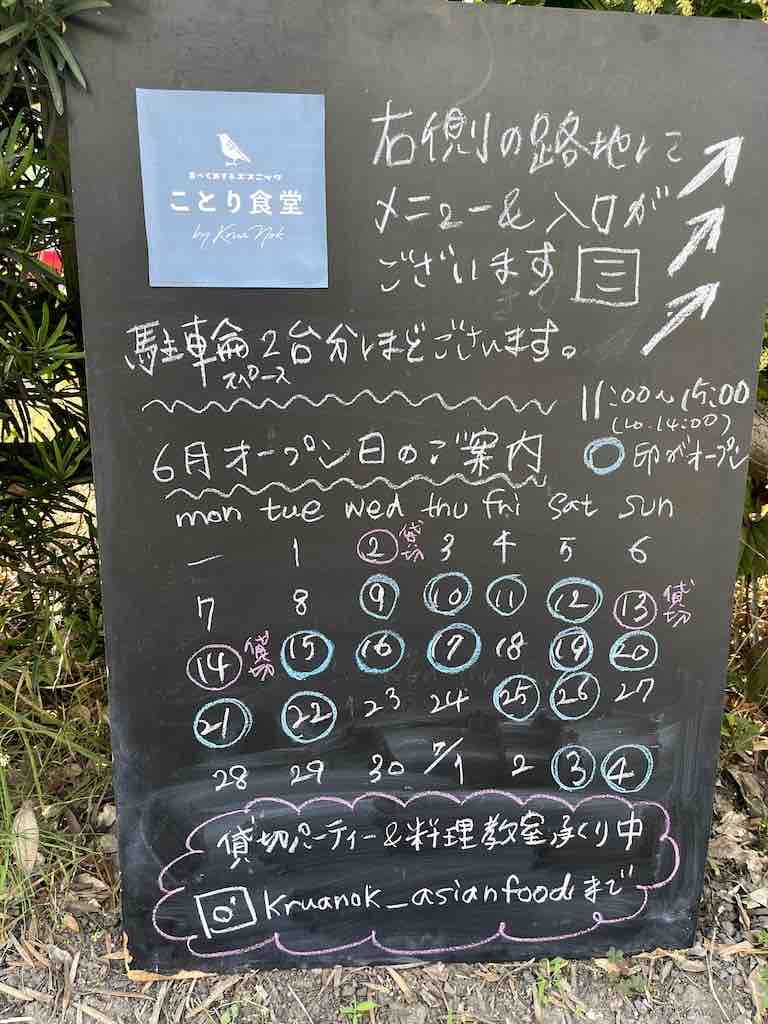 食べて旅するエスニック
ことり食堂
by Krua Nok
右側の路地にて
メニュー&入口が
ございます
駐車輪2台分ほどございます。
スペース
11:00〜15:00
(Lo.14:00)
○印がオープン
6月オープン日のご案内
mon tue wed thu fri sat sun
— 1 2 貸切 3 4 5 6
7 8 9 10 11 12 13 貸切
14 貸切 15 16 17 18 19 20
21 22 23 24 25 26 27
28 29 30 7/1 2 3 4
貸切パーティー&料理教室承り中
kruanok_asianfoodまで